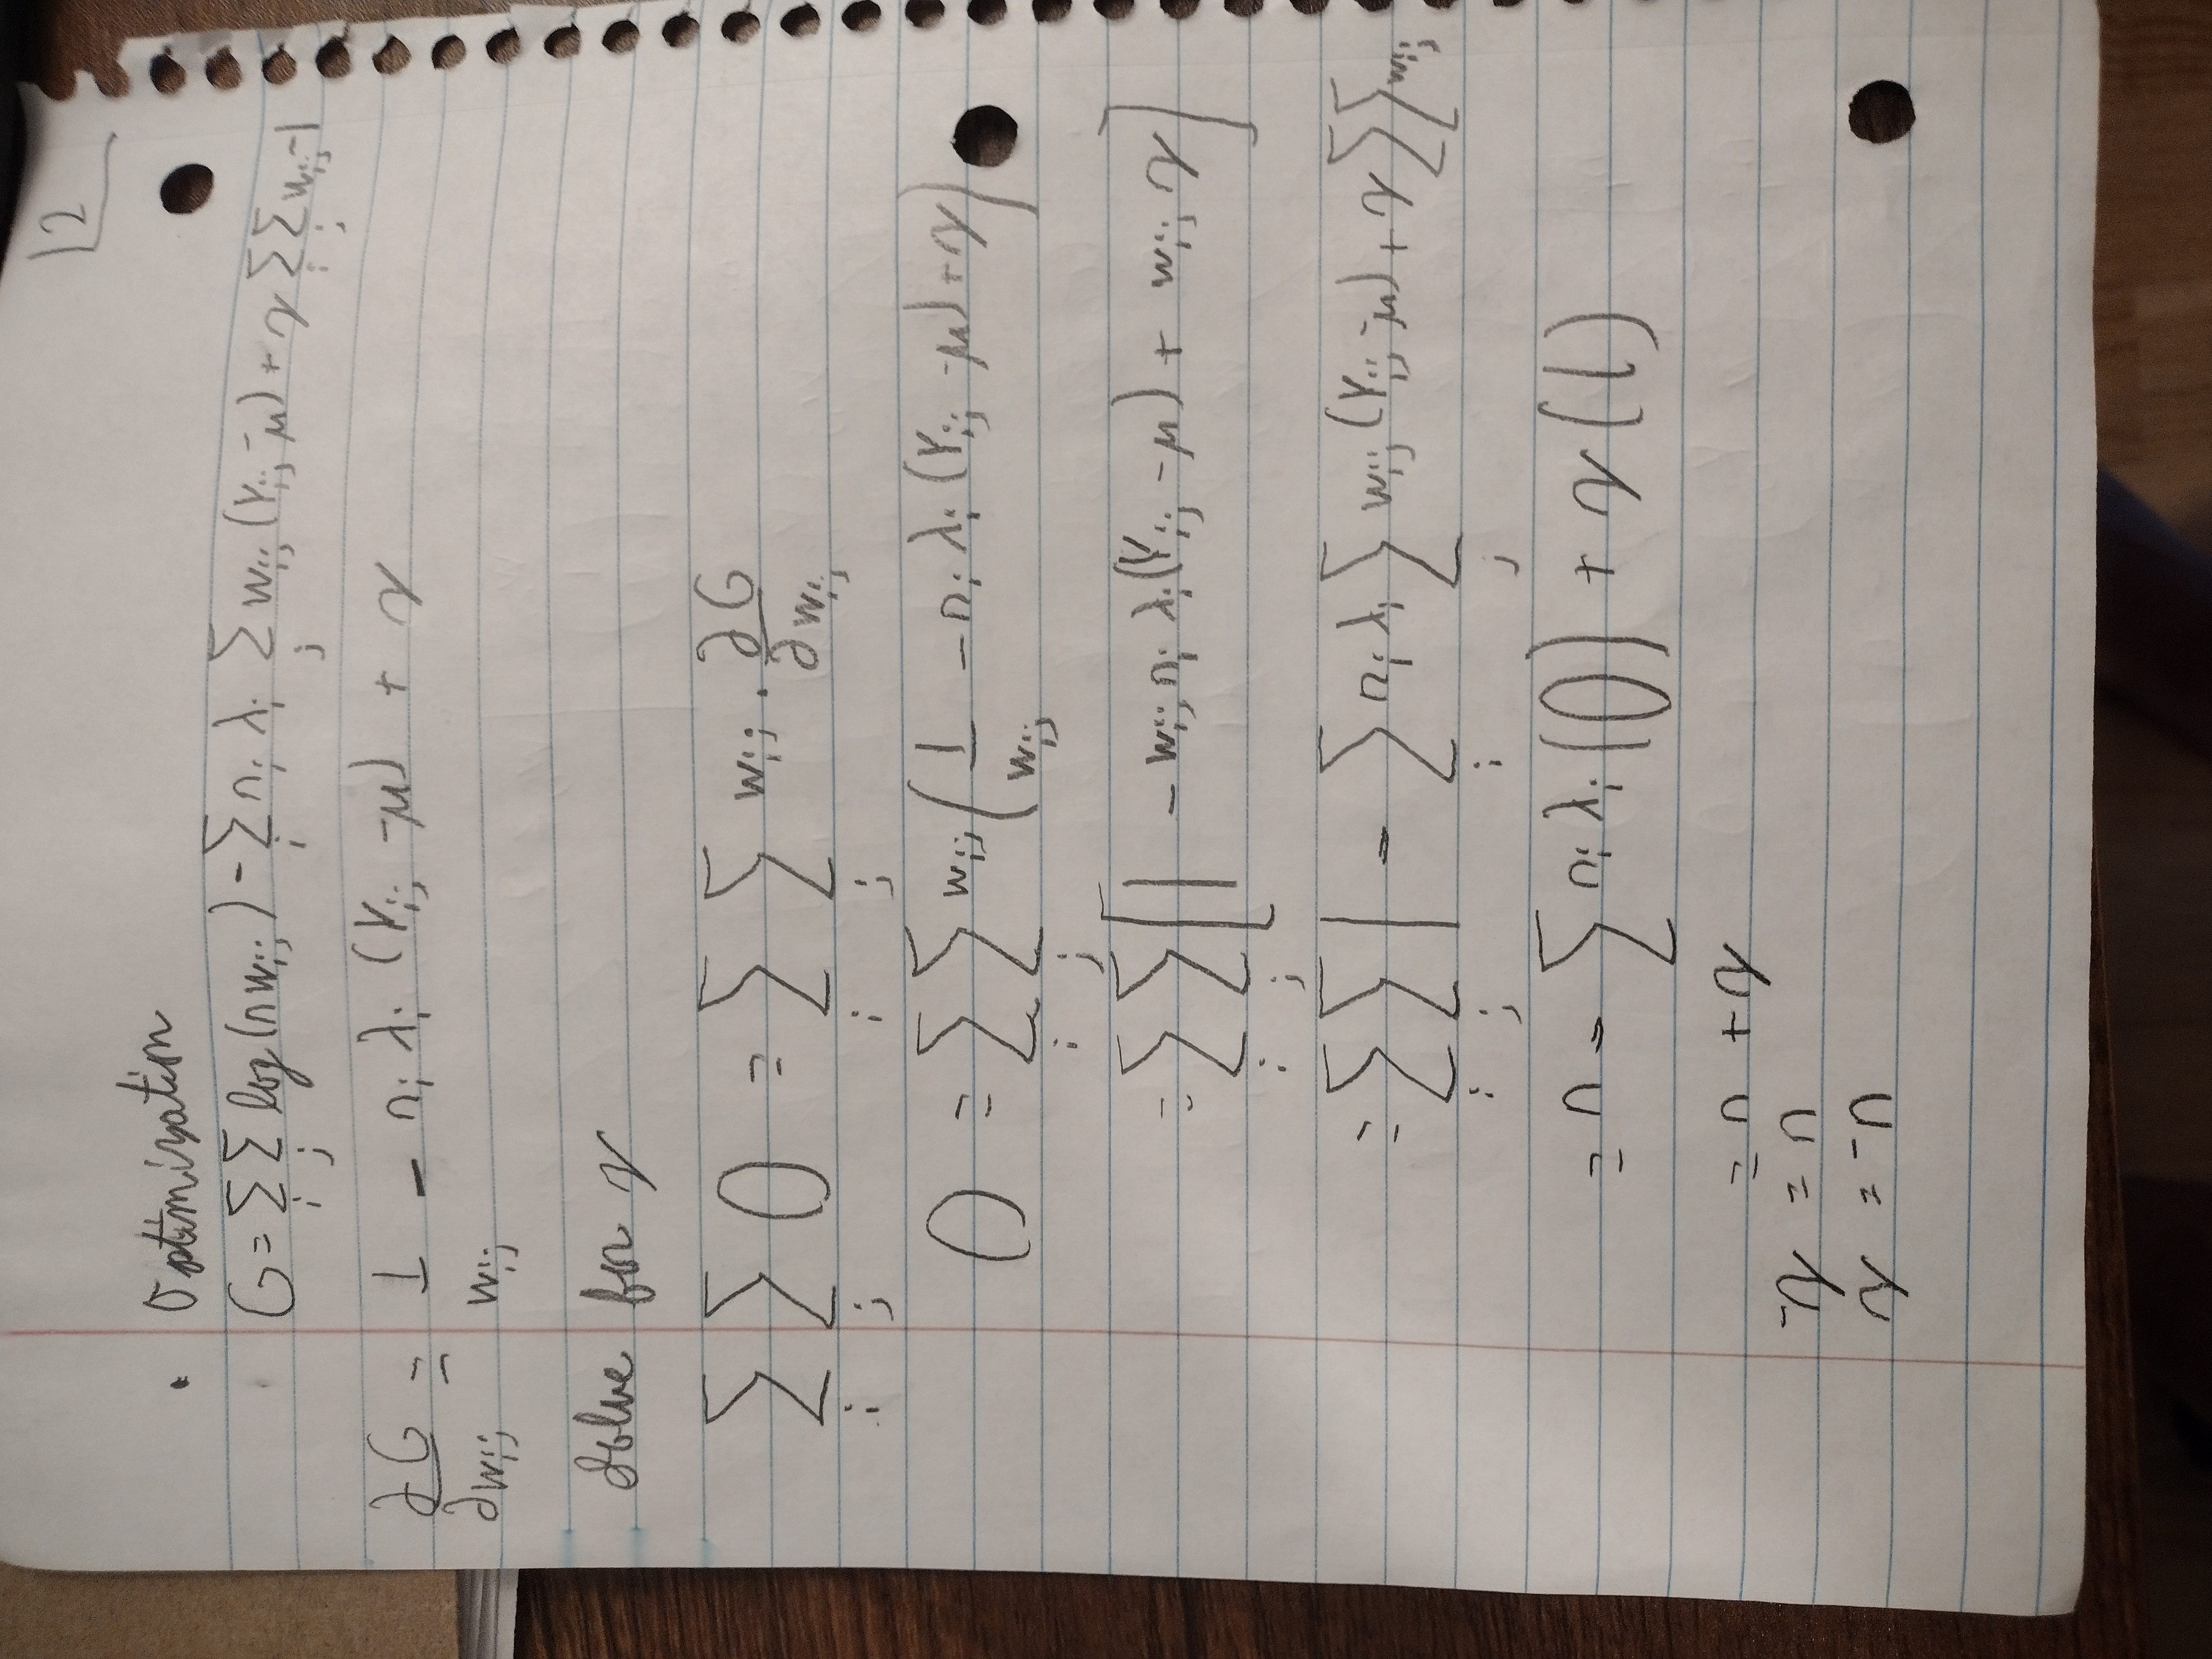 2
• Optimization
G = Σ_i Σ_j log(n w_ij) - Σ_i n_i λ_i Σ_j w_ij (Y_ij - μ) + γ Σ_i Σ_j w_ij - 1
∂G/∂w_ij = 1/w_ij - n_i λ_i (Y_ij - μ) + γ
Solve for γ
Σ_i Σ_j 0 = Σ_i Σ_j w_ij · ∂G/∂w_ij
0 = Σ_i Σ_j w_ij (1/w_ij - n_i λ_i (Y_ij - μ) + γ)
= Σ_i Σ_j [1 - w_ij n_i λ_i (Y_ij - μ) + w_ij γ]
= Σ_i Σ_j 1 - Σ_i n_i λ_i Σ_j w_ij (Y_ij - μ) + γ Σ Σ w_ij
= n - Σ n_i λ_i (0) + γ (1)
= n + γ
-γ = n
γ = -n